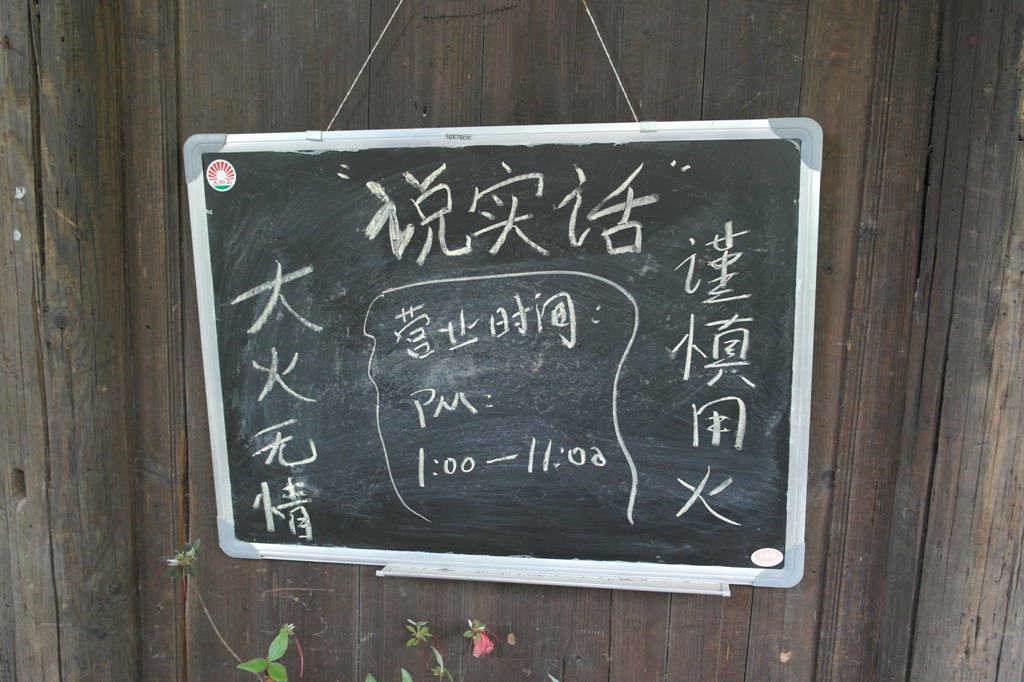 “说实话”
大火无情
营业时间:
PM:
1:00-11:00
谨慎用火